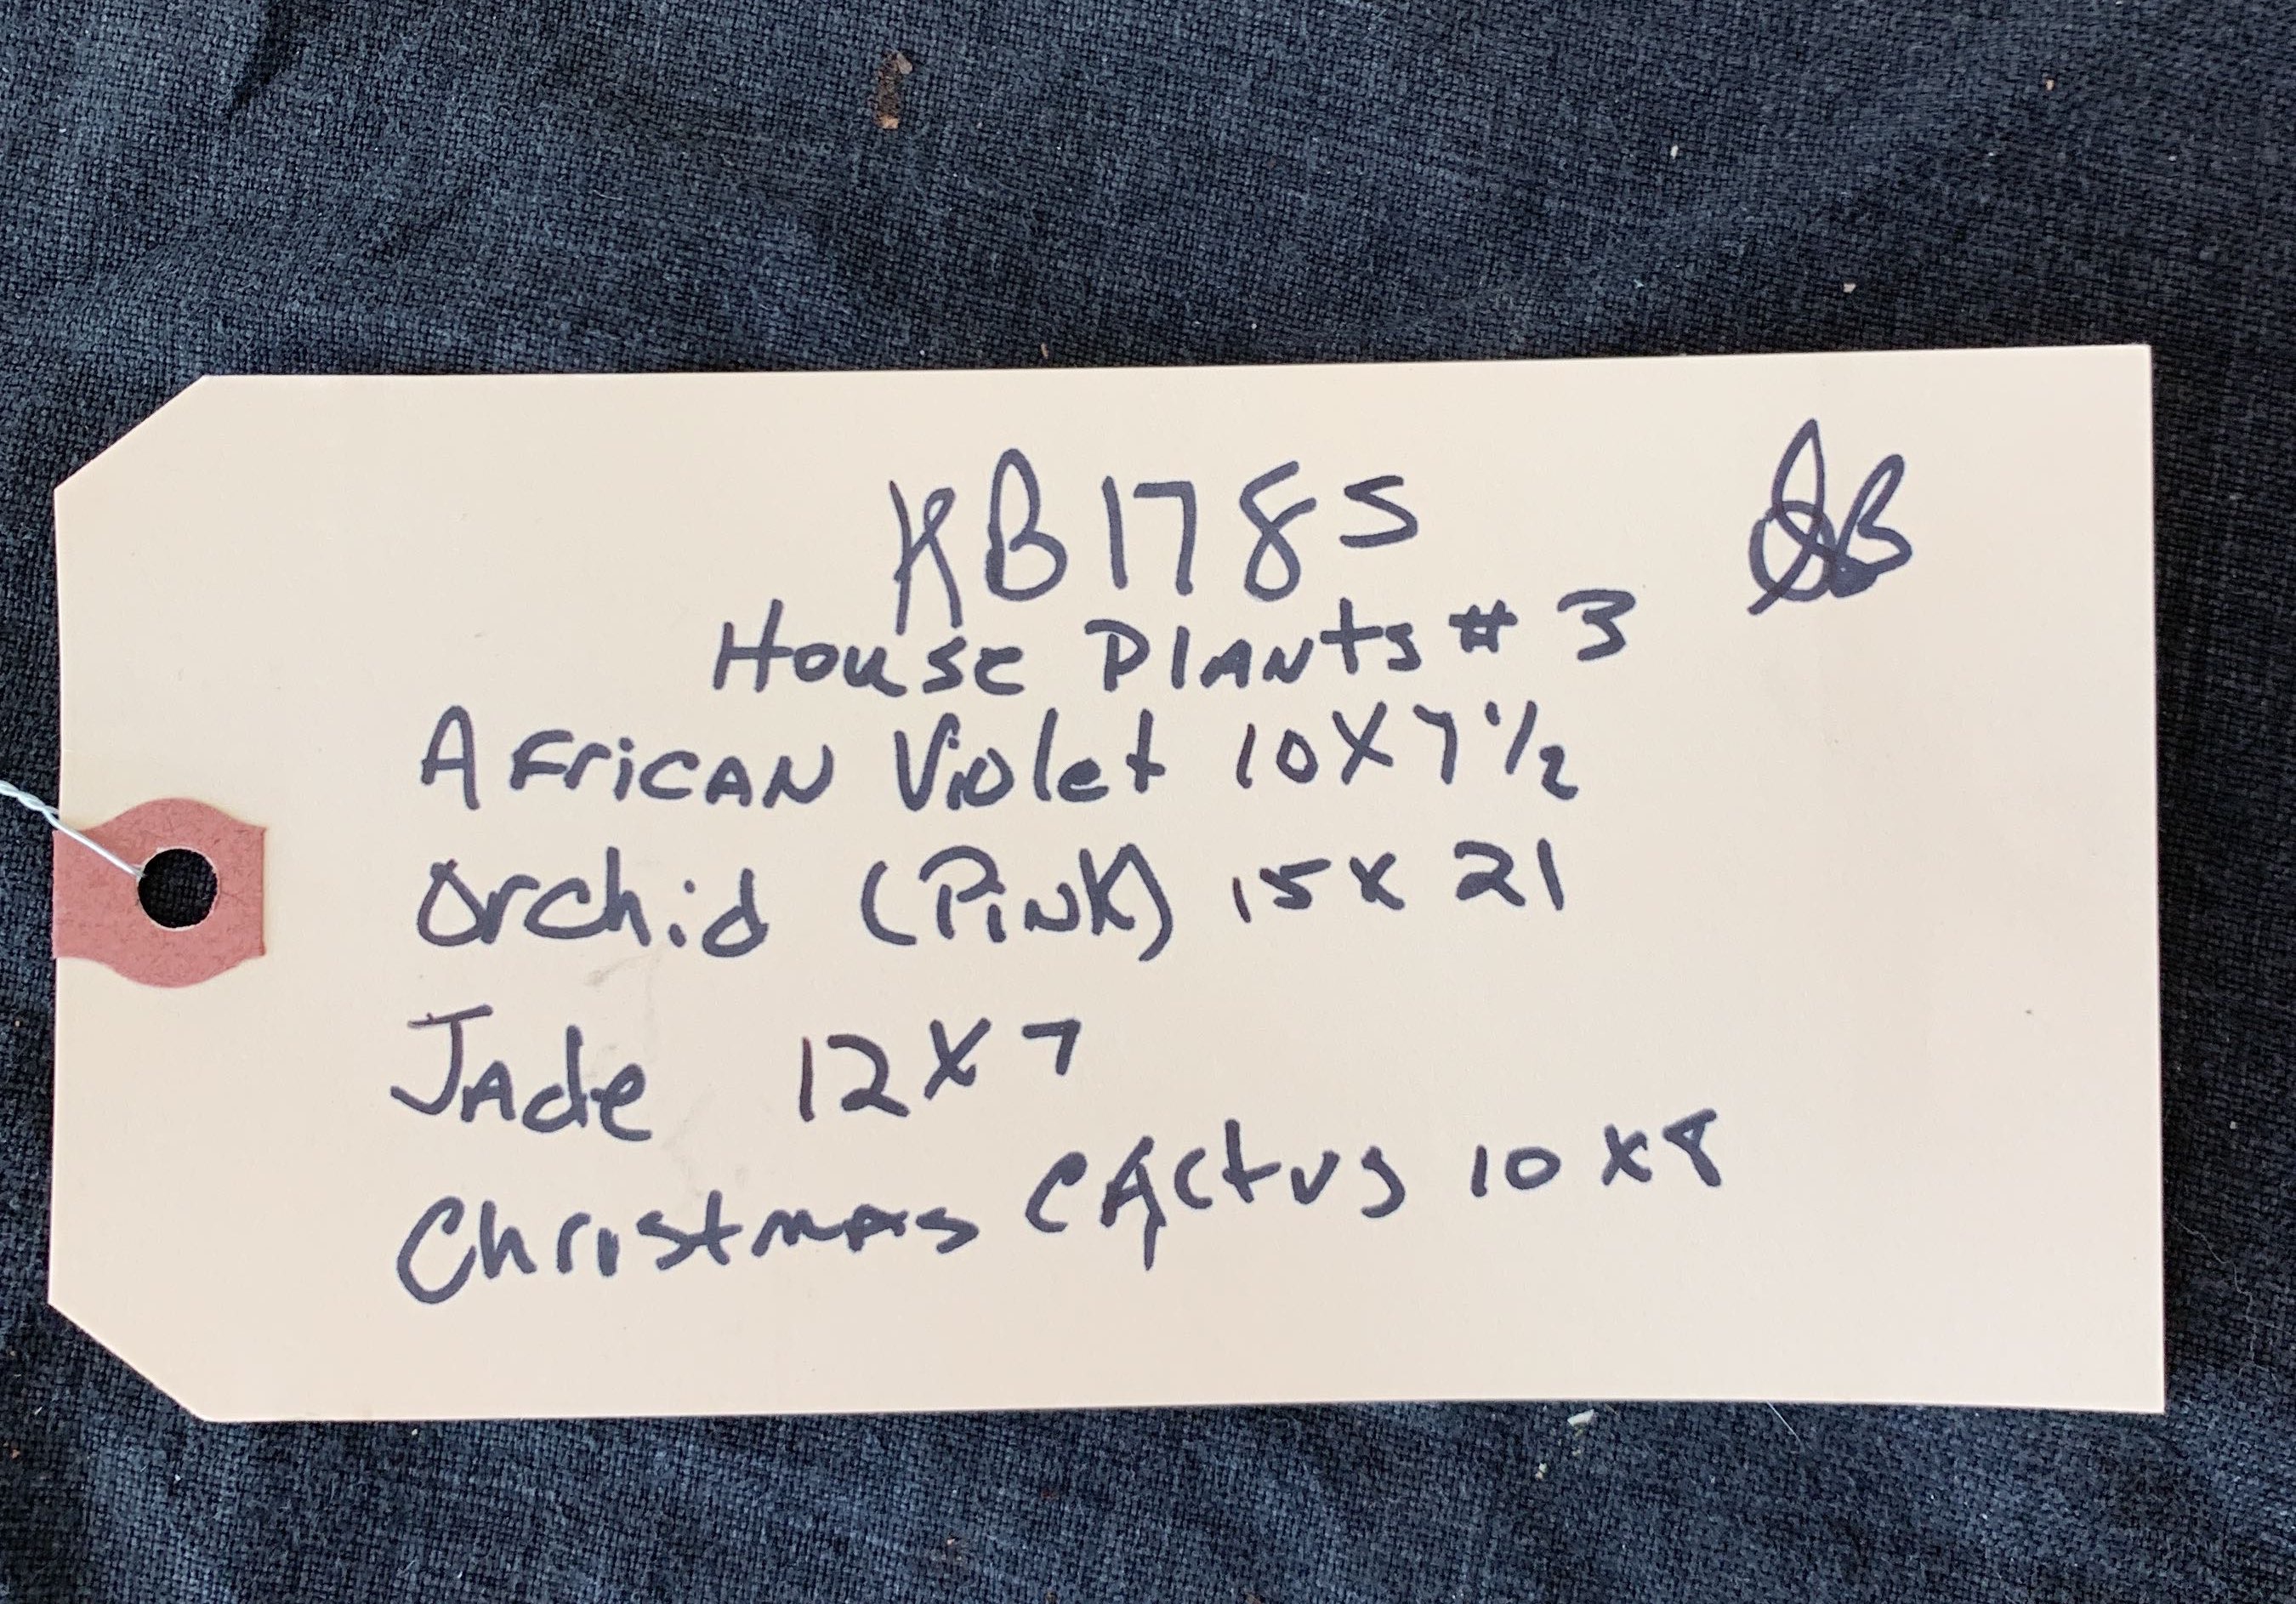 KB1785
House Plants # 3
African Violet 10X7 1/2
Orchid (Pink) 15x 21
Jade 12X7
Christmas Cactus 10 x 8